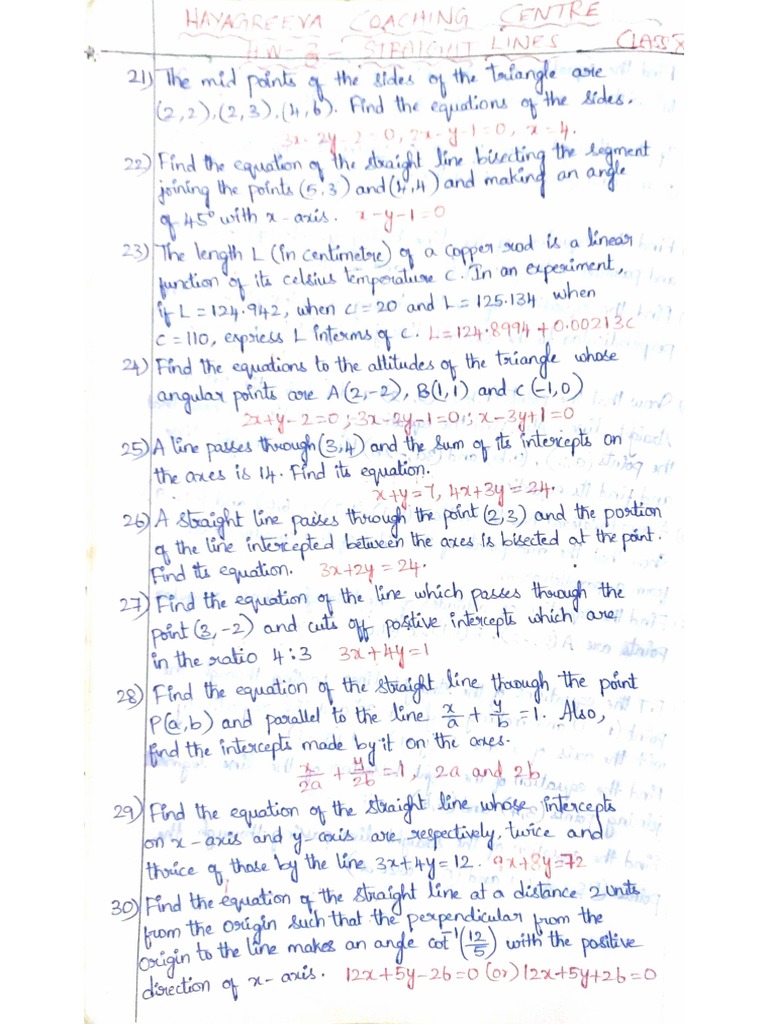 HAYAGREEVA COACHING CENTRE
HW-3 - STRAIGHT LINES CLASS X
21) The mid points of the sides of the triangle are
(2,2), (2,3), (4,6). Find the equations of the sides.
3x-2y-2=0, 2x-y-1=0, x=4.
22) Find the equation of the straight line bisecting the segment
joining the points (5,3) and (4,4) and making an angle
of 45° with x-axis. x-y-1=0
23) The length L (in centimetre) of a copper rod is a linear
function of its celsius temperature C. In an experiment,
if L=124.942, when C=20 and L=125.134 when
C=110, express L interms of C. L=124.8994+0.00213C
24) Find the equations to the altitudes of the triangle whose
angular points are A(2,-2), B(1,1) and C(-1,0)
2x+y-2=0; 3x-2y-1=0; x-3y+1=0
25) A line passes through (3,4) and the sum of its intercepts on
the axes is 14. Find its equation.
x+y=7, 4x+3y=24.
26) A straight line passes through the point (2,3) and the portion
of the line intercepted between the axes is bisected at the point.
Find its equation. 3x+2y=24.
27) Find the equation of the line which passes through the
point (3,-2) and cuts off positive intercepts which are
in the ratio 4:3 3x+4y=1
28) Find the equation of the straight line through the point
P(a,b) and parallel to the line x/a + y/b = 1. Also,
find the intercepts made by it on the axes.
x/2a + y/2b = 1, 2a and 2b
29) Find the equation of the straight line whose intercepts
on x-axis and y-axis are respectively, twice and
thrice of those by the line 3x+4y=12. 9x+8y=72
30) Find the equation of the straight line at a distance 2 units
from the origin such that the perpendicular from the
origin to the line makes an angle cot⁻¹(12/5) with the positive
direction of x-axis. 12x+5y-26=0 (or) 12x+5y+26=0